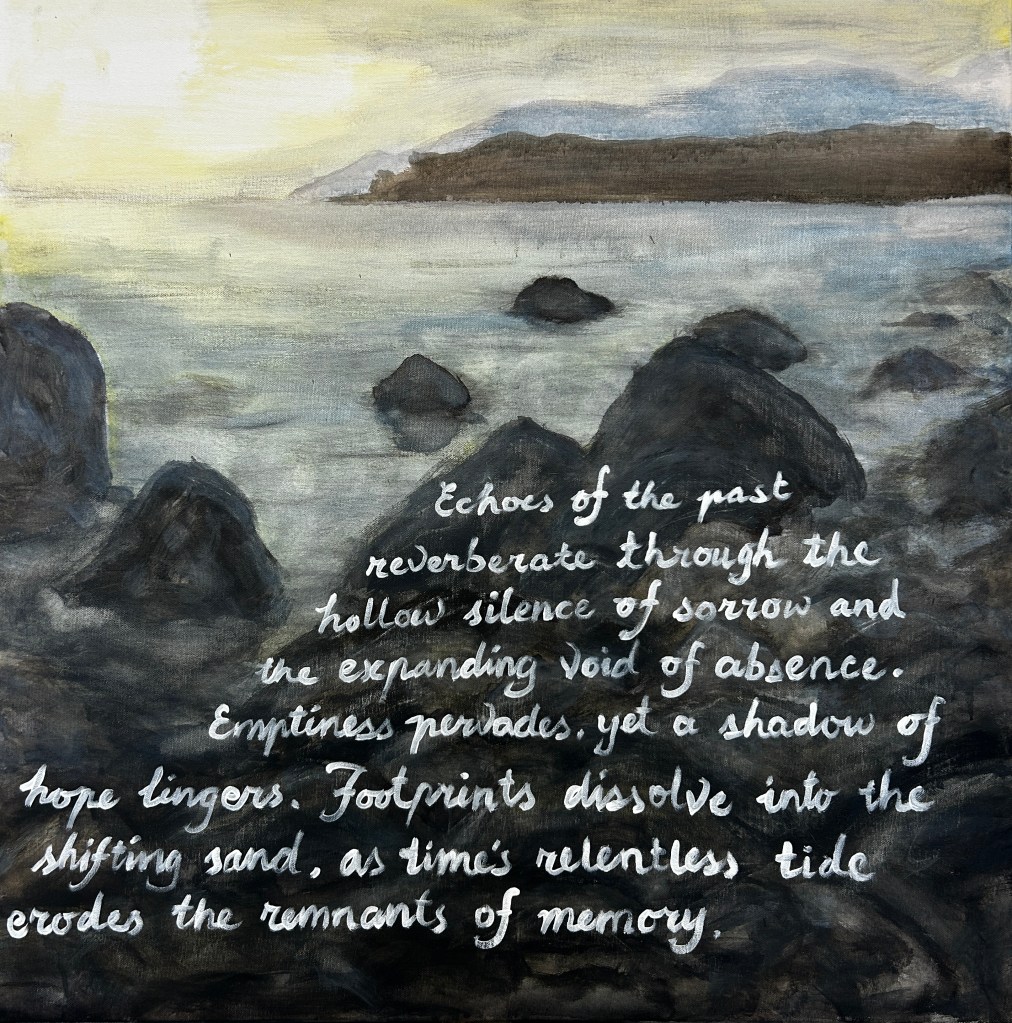 Echoes of the past
reverberate through the
hollow silence of sorrow and
the expanding void of absence.
Emptiness pervades, yet a shadow of
hope lingers. Footprints dissolve into the
shifting sand, as time's relentless tide
erodes the remnants of memory.